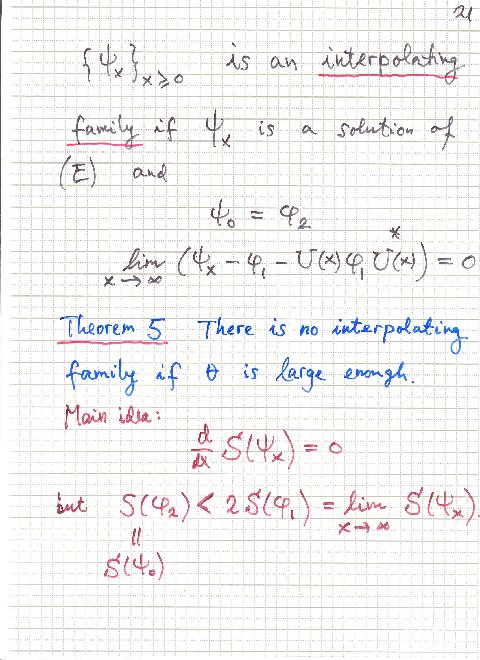 21
{ψ_x}_{x⩾0} is an interpolating
family if ψ_x is a solution of
(E) and
ψ_0 = φ_2
lim_{x→∞} (ψ_x − φ_1 − U(x)φ_1 U(x)^*) = 0
Theorem 5 There is no interpolating
family if θ is large enough.
Main idea:
d/dx S(ψ_x) = 0
but S(φ_2) < 2S(φ_1) = lim_{x→∞} S(ψ_x).
||
S(ψ_0)